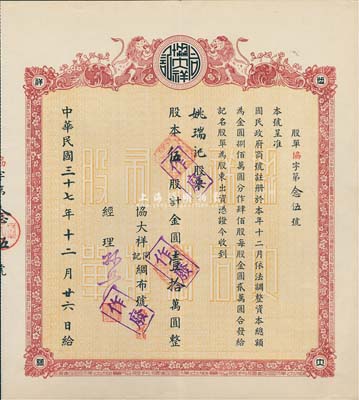 股單協字第念伍號
本號呈准
國民政府商號註册於本年十二月依法調整資本總額
為金圓捌佰萬圓分作肆佰股每股金圓貳萬圓合發給
記名股單為股東出資憑證今收到
姚瑞記股東
股本伍股計金圓壹拾萬圓整
協大祥同記綢布號
經理
中華民國三十七年十二月廿六日給
作廢
作廢
作廢
字第念伍號
協
大
祥